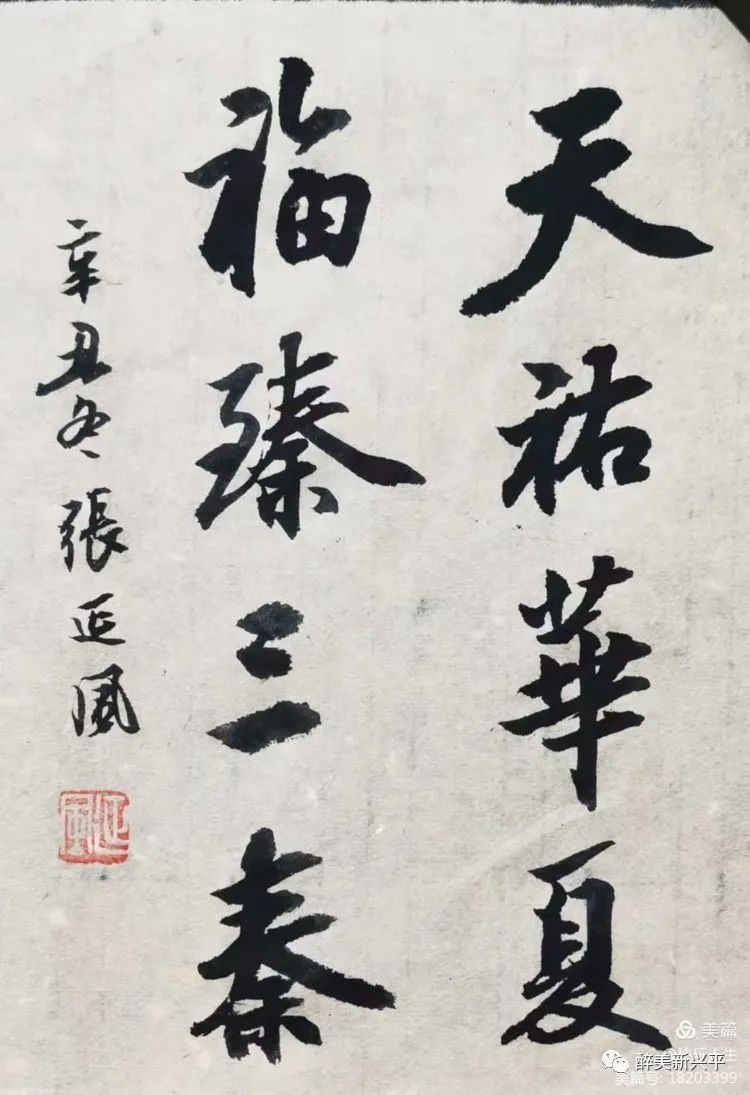 天祐華夏
福臻三秦
辛丑冬 張延風
延風
美篇
醉美新兴平
美篇号: 18203399